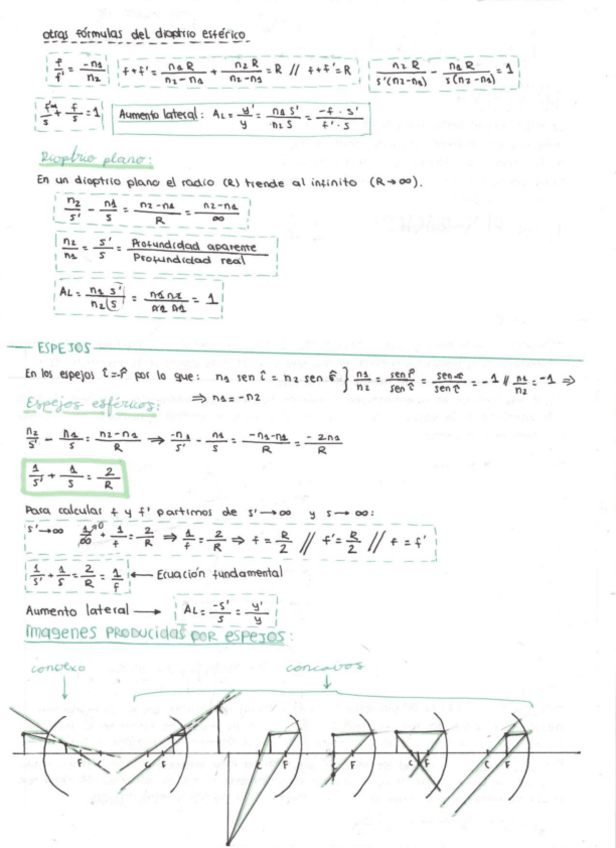 otras fórmulas del dioptrio esférico
f/f' = -n1/n2   f+f' = n1R/(n2-n1) + n2R/(n2-n1) = R // f+f'=R   n2R/(s'(n2-n1)) - n1R/(s(n2-n1)) = 1
f'/s' + f/s = 1   Aumento lateral: AL = y'/y = n1 s'/(n2 s) = -f·s'/(f'·s)
Dioptrio plano:
En un dioptrio plano el radio (R) tiende al infinito (R→∞).
n2/s' - n1/s = (n2-n1)/R = (n2-n1)/∞
n2/n1 = s'/s = Profundidad aparente/Profundidad real
AL = n1 s'/(n2 s) = n1 n2/(n2 n1) = 1
ESPEJOS
En los espejos î=-r̂ por lo que: n1 sen î = n2 sen r̂ } n1/n2 = sen r̂/sen î = sen-î/sen î = -1 // n1/n2 = -1 ⇒
⇒ n1=-n2
Espejos esféricos:
n2/s' - n1/s = (n2-n1)/R ⇒ -n1/s' - n1/s = (-n1-n1)/R = -2n1/R
1/s' + 1/s = 2/R
Para calcular f y f' partimos de s'→∞ y s→∞:
s'→∞ 1/∞ →0 + 1/f = 2/R ⇒ 1/f = 2/R ⇒ f = R/2 // f' = R/2 // f = f'
1/s' + 1/s = 2/R = 1/f ← Ecuación fundamental
Aumento lateral → AL = -s'/s = y'/y
Imagenes PRODUCIDAS POR ESPEJOS:
convexo   concavos
F C   C F   C F   C F   C F